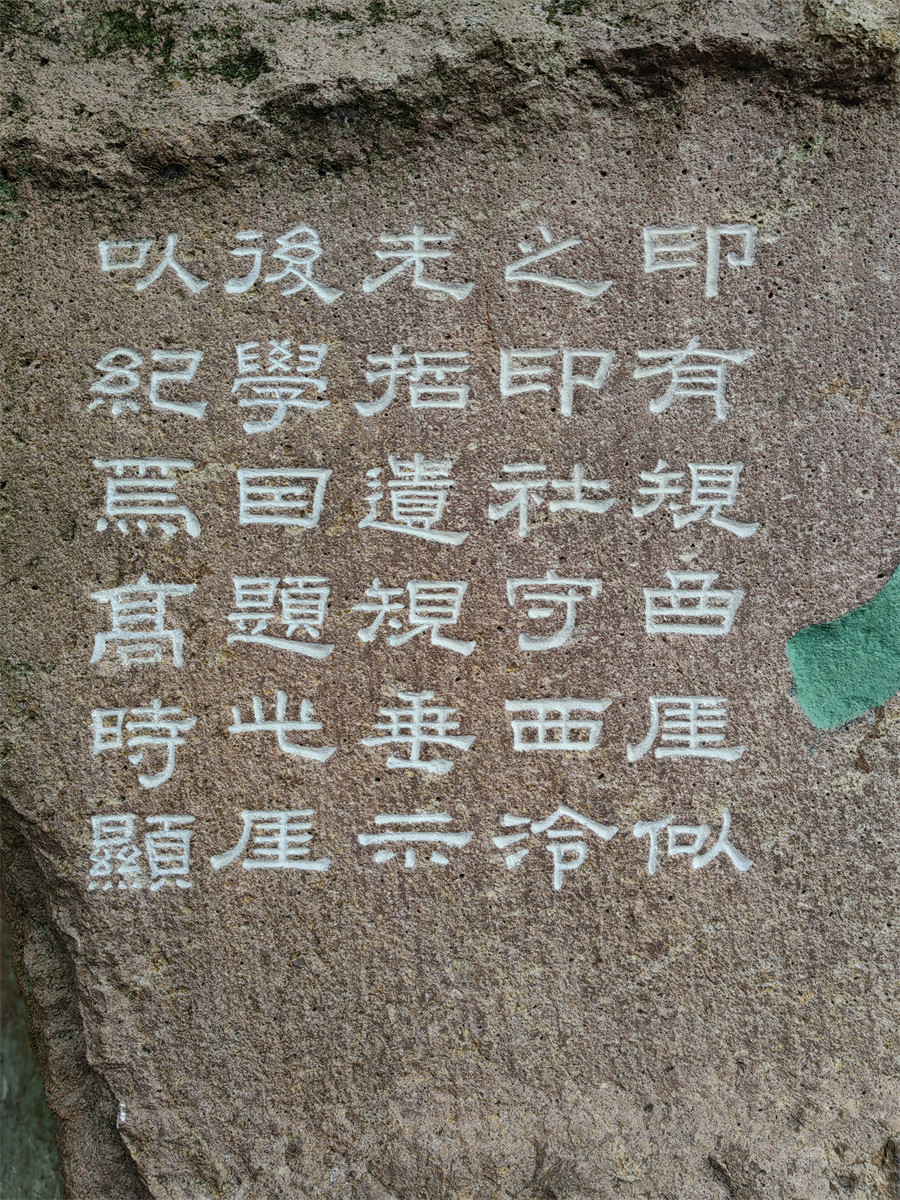 印有規厓似
之印社守西泠
先哲遺規垂示
後學因題此厓
以紀焉高時顯